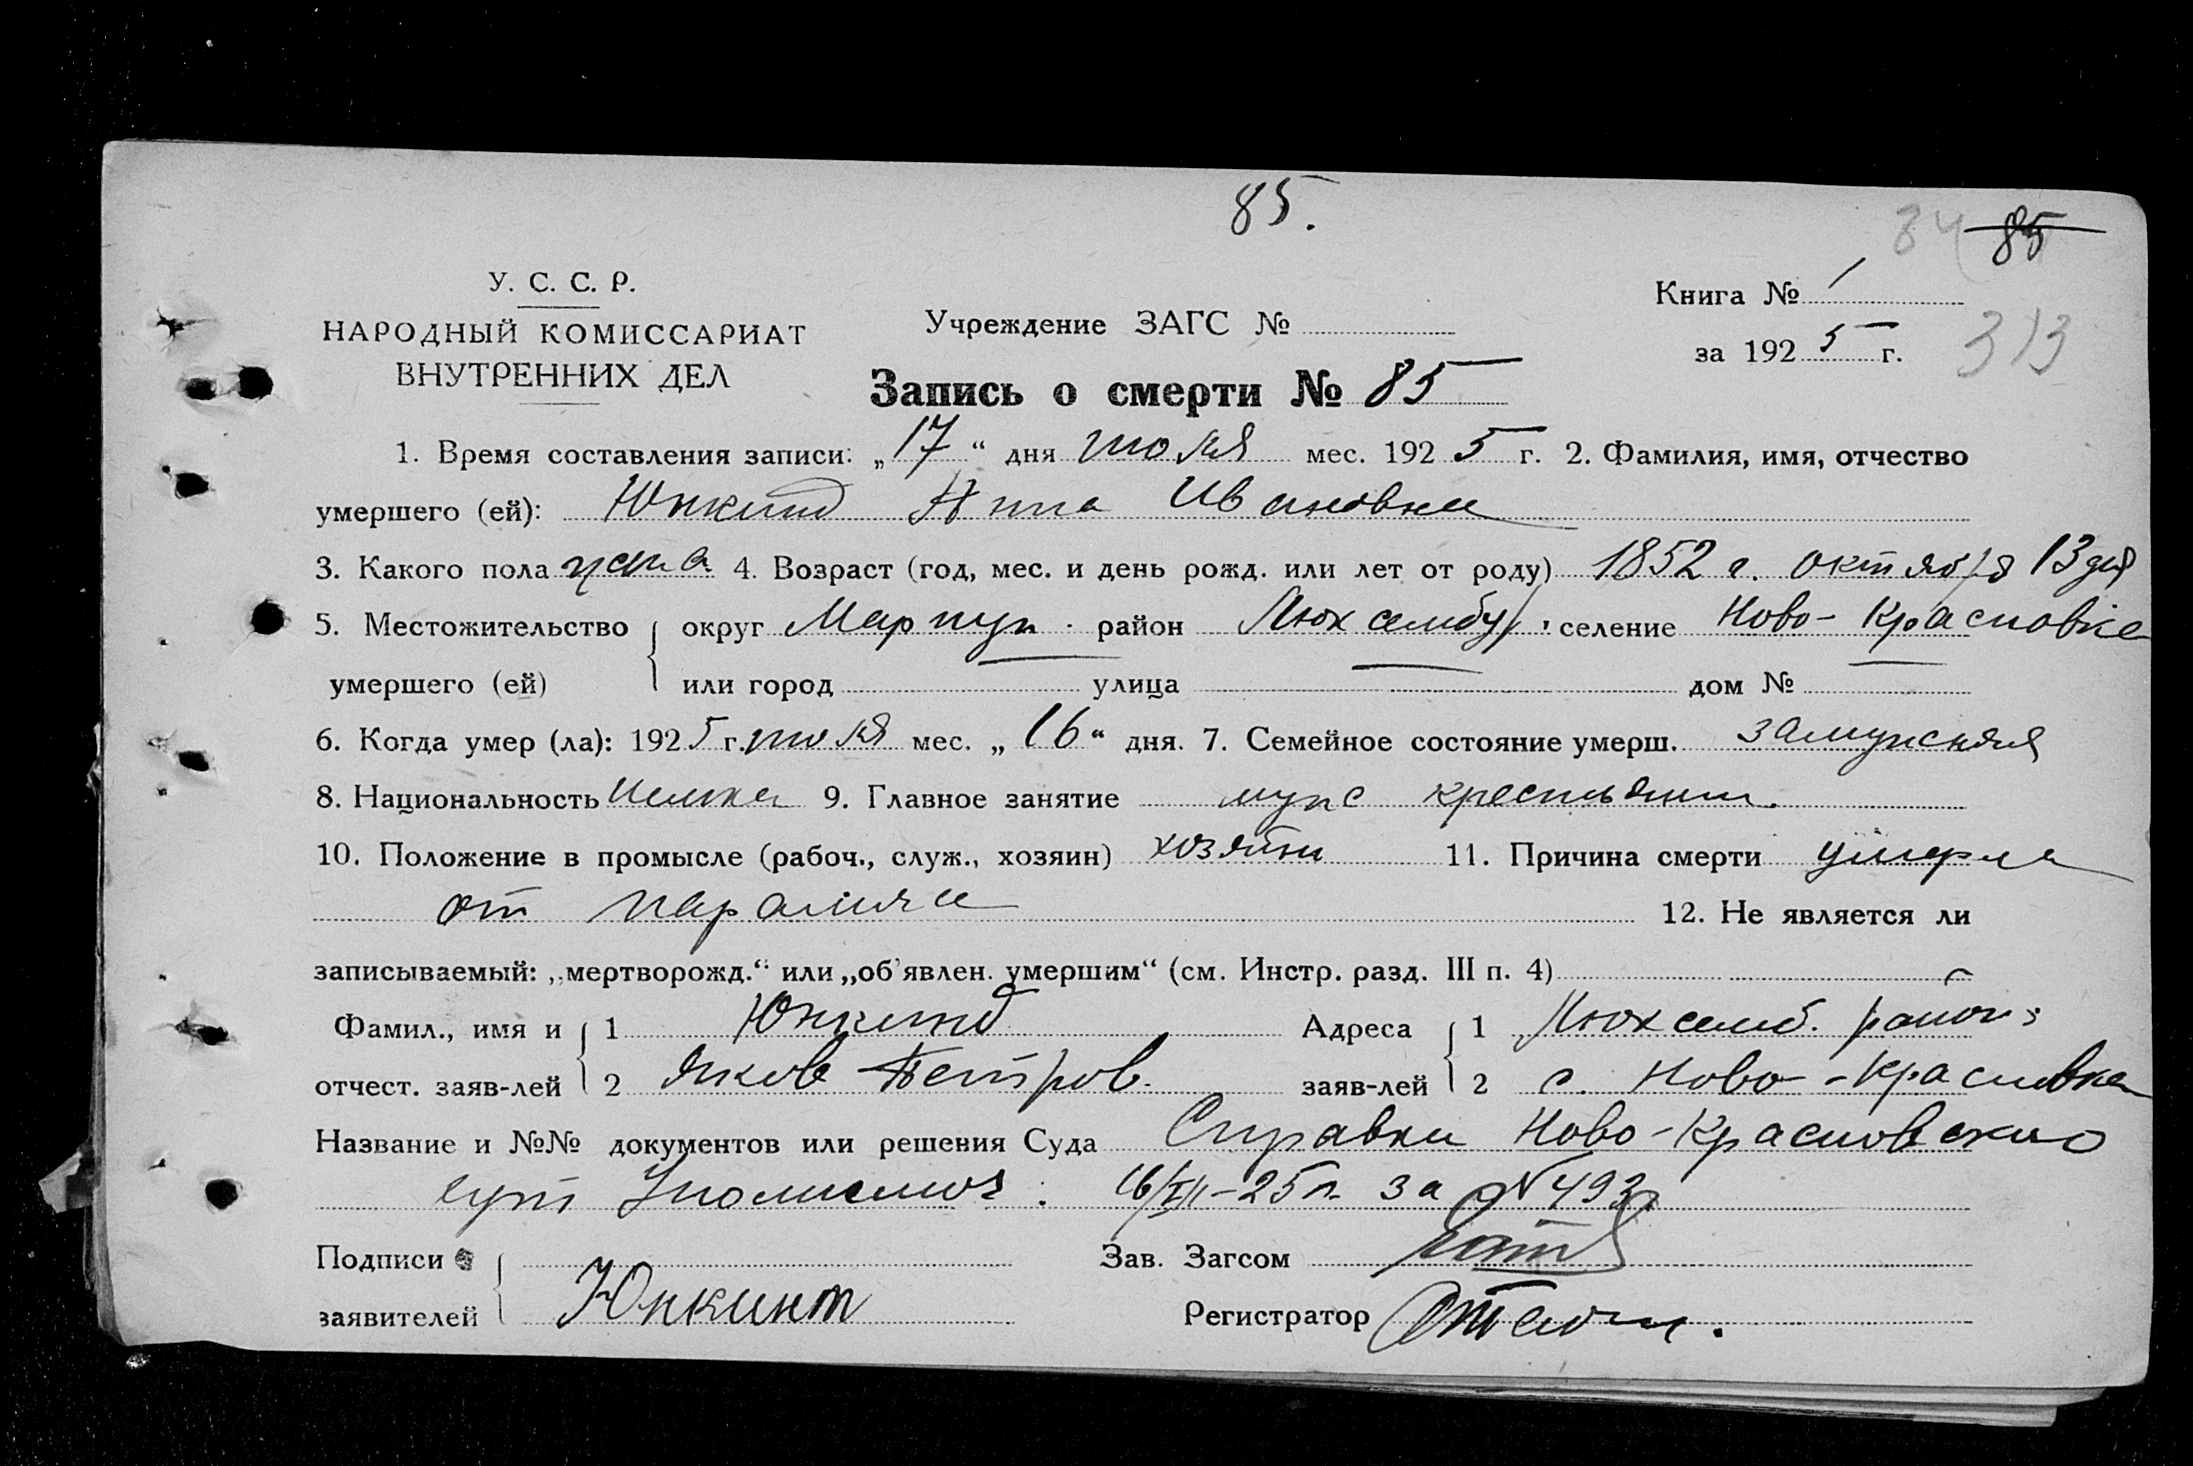 85.
34 85
У. С. С. Р.
НАРОДНЫЙ КОМИССАРИАТ
ВНУТРЕННИХ ДЕЛ
Учреждение ЗАГС №
Книга № 1
за 1925 г.
313
Запись о смерти № 85
1. Время составления записи: „17“ дня июля мес. 1925 г. 2. Фамилия, имя, отчество
умершего (ей): Юнкинд Анна Ивановна
3. Какого пола жена 4. Возраст (год, мес. и день рожд. или лет от роду) 1852 г. октября 13 дня
5. Местожительство округ Мариуп. район Люксембур. селение Ново-Красновка
умершего (ей) или город — улица — дом № —
6. Когда умер (ла): 1925 г. июля мес. „16“ дня. 7. Семейное состояние умерш. замужняя
8. Национальность Немка 9. Главное занятие муж крестьянин.
10. Положение в промысле (рабоч., служ., хозяин) хозяин 11. Причина смерти умерла
от паралича 12. Не является ли
записываемый: „мертворожд.“ или „об'явлен. умершим“ (см. Инстр. разд. III п. 4)
Фамил., имя и 1 Юнкинд Адреса 1 Люксемб. район
отчест. заяв-лей 2 Яков Петров. заяв-лей 2 с. Ново-Красновка
Название и №№ документов или решения Суда Справка Ново-Красновского
16/VII-25 г. за № 493
Подписи Зав. Загсом
заявителей Юнкинт Регистратор